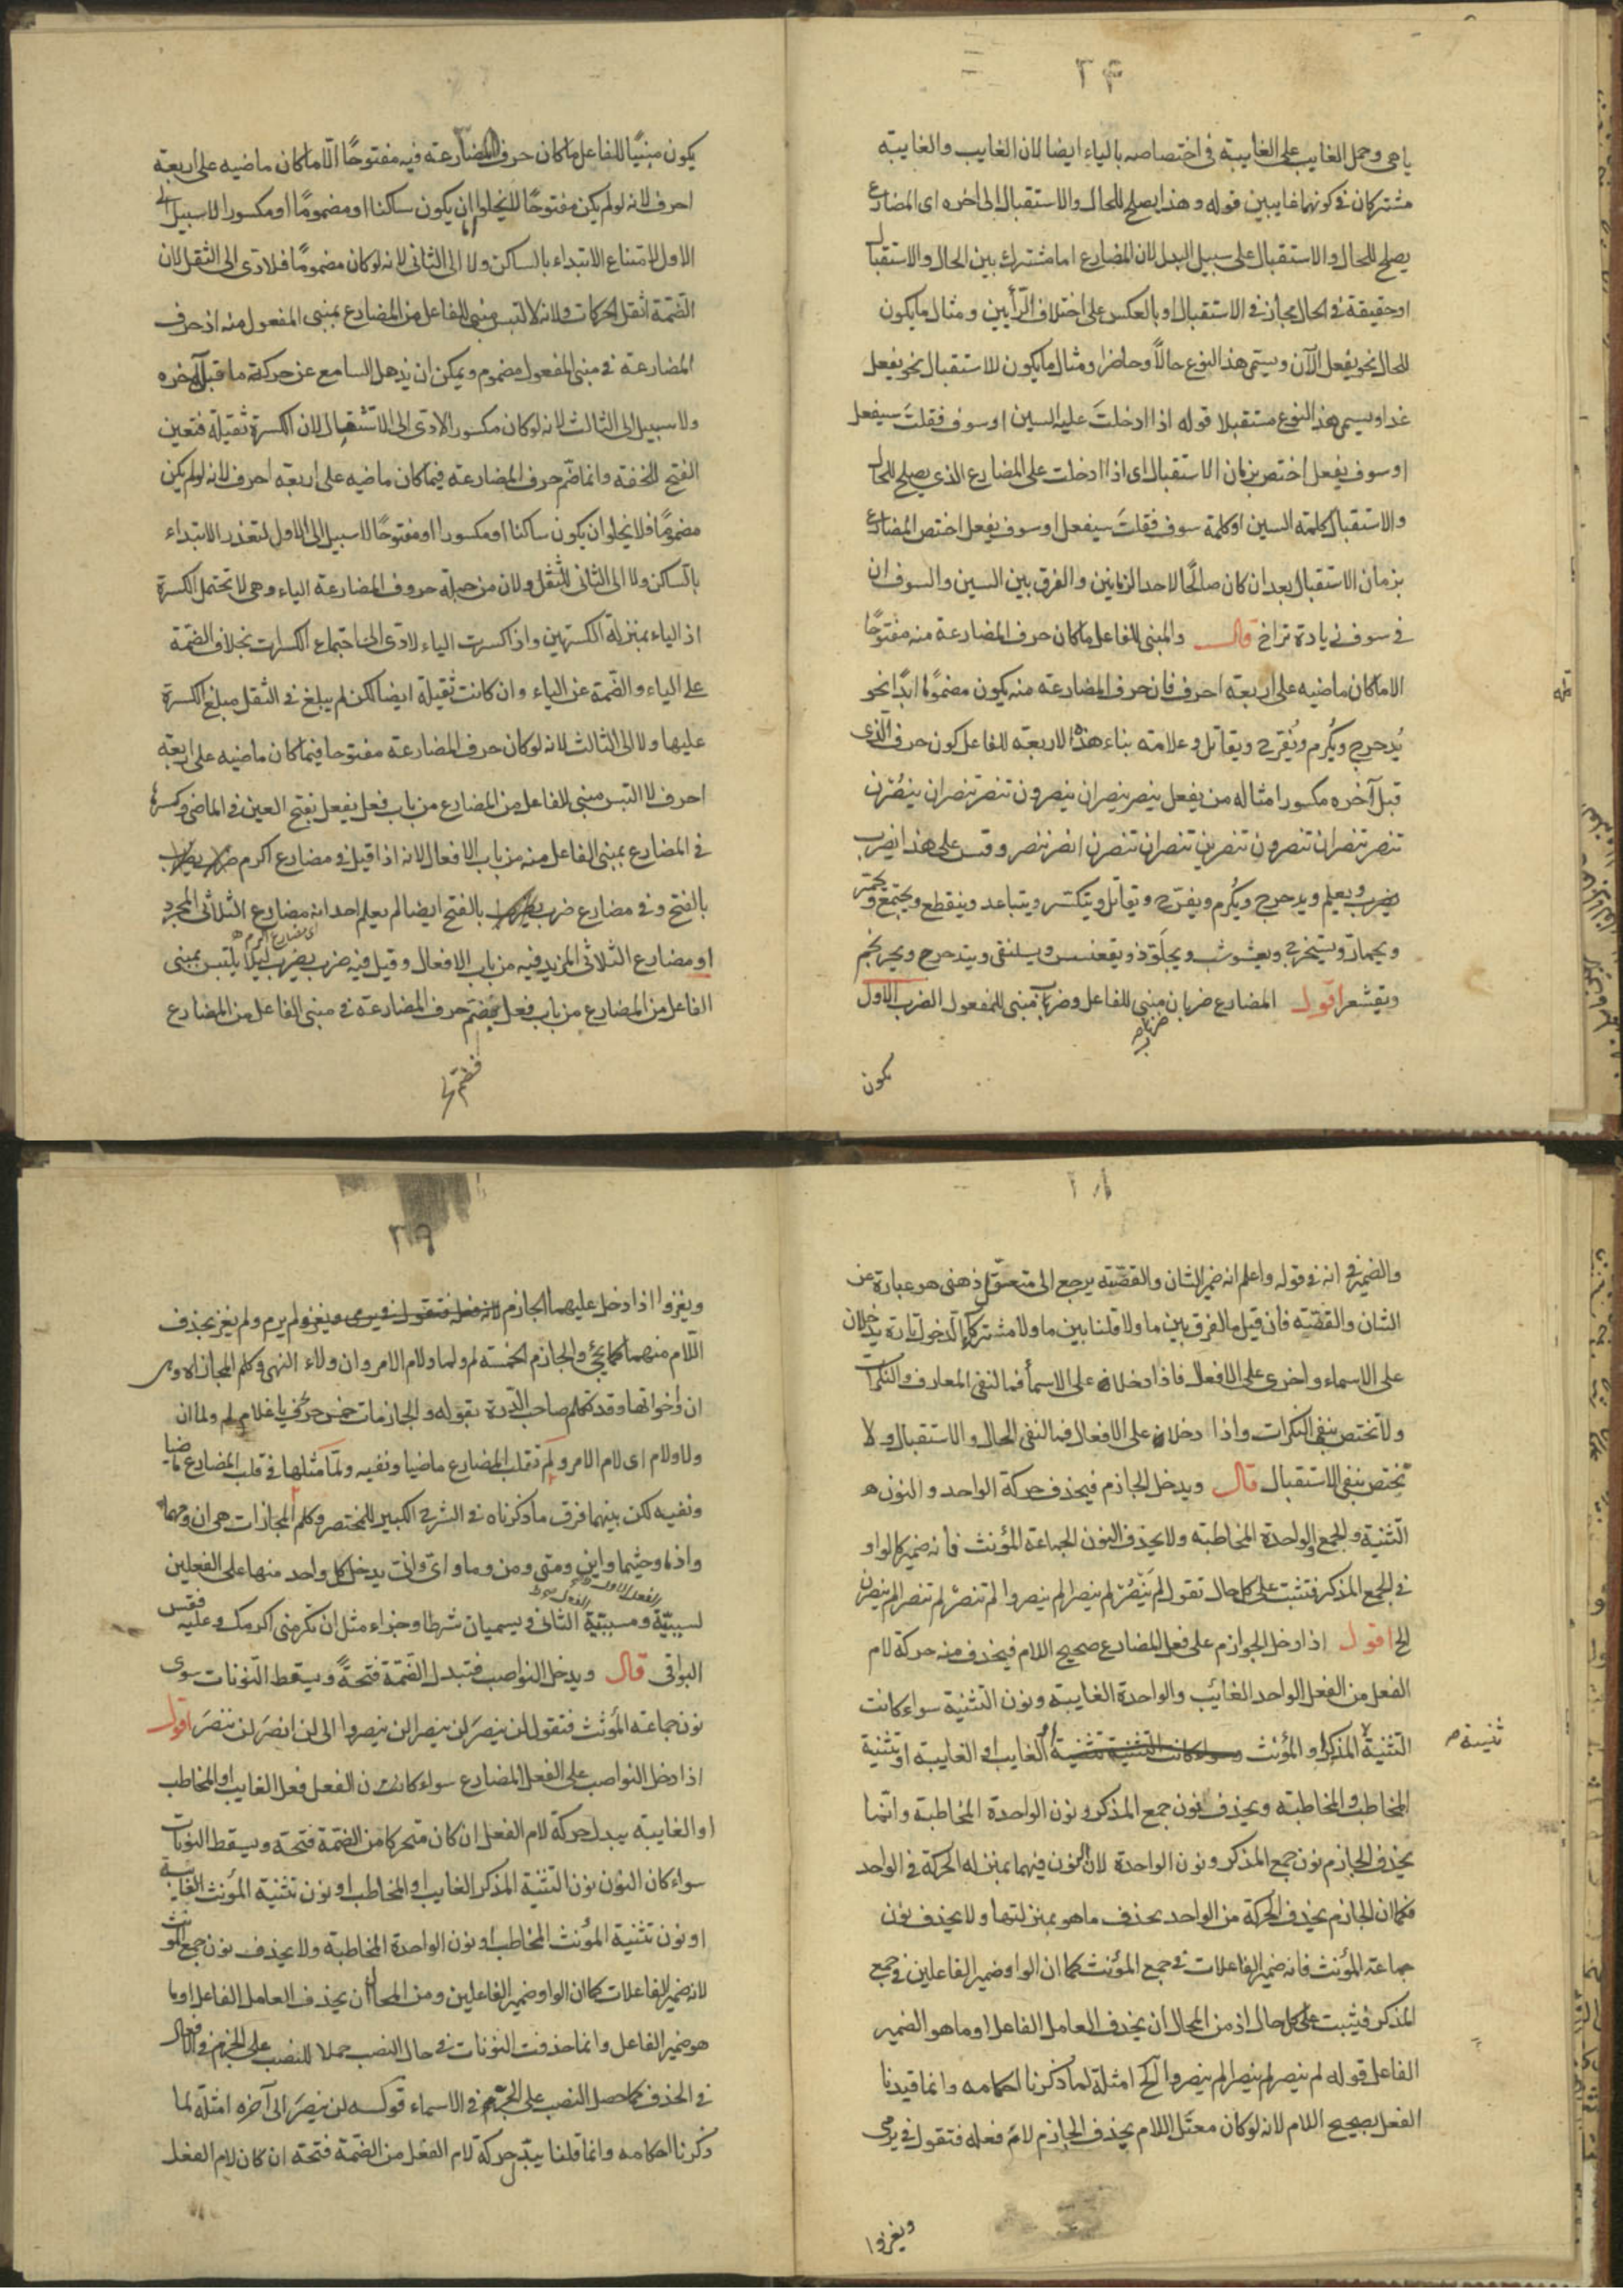 ٢٤
ياء وحمل الغايب على الغايبة في اختصاصه بالياء ايضا لان الغايب والغايبة
مشتركان في كونهما غايبين قوله وهذا يصلح للحال والاستقبال الى اخره اى المضارع
يصلح للحال والاستقبال على سبيل البدل لان المضارع اما مشترك بين الحال والاستقبال
او حقيقة في الحال مجاز في الاستقبال او بالعكس على اختلاف الرأيين ومثال ما يكون
للحال نحو يفعل الآن ويسمى هذا النوع حالاً وحاضرا ومثال ما يكون للاستقبال نحو يفعل
غدا ويسمى هذا النوع مستقبلا قوله اذا ادخلتَ عليه السين او سوف فقلتَ سيفعل
او سوف يفعل اختص بزمان الاستقبال اى اذا ادخلت على المضارع الذي يصلح للحال
والاستقبال كلمة السين او كلمة سوف فقلتَ سيفعل او سوف يفعل اختص المضارع
بزمان الاستقبال بعد ان كان صالحًا لاحد الزمانين والفرق بين السين والسوف ان
في سوف زيادة تراخ قال والمبنى للفاعل ما كان حرف المضارعة منه مفتوحًا
الا ما كان ماضيه على اربعة احرف فان حرف المضارعة منه يكون مضمومًا ابدًا نحو
يُدحرج ويُكرم ويُفرح ويقاتل وعلامة بناء هذه الاربعة للفاعل كون حرف الذى
قبل آخره مكسورا مثاله من يفعل ينصر ينصران ينصرون تنصر تنصران ينصُرن
تنصر تنصران تنصرون تنصرين تنصران تنصرن انصر ننصر وقس على هذا يضرب
ويعلم ويدحرج ويُكرم ويفرّح ويقاتل ويتكسّر ويتباعد وينقطع ويجتمع ويحمرّ
ويحمارّ ويستخرج ويعشوشب ويجلَوّذ ويقعنسس ويسلنقى ويتدحرج ويحرنجم
ويقشعر اقول المضارع ضربان مبنى للفاعل وضرب مبنى للمفعول الضرب الاول
يكون
يكون مبنيًا للفاعل ما كان حرف المضارعة فيه مفتوحًا الّا ما كان ماضيه على اربعة
احرف لانه لو لم يكن مفتوحًا لا يخلوا ان يكون ساكنا او مضمومًا او مكسورا لا سبيل الى
الاول لامتناع الابتداء بالساكن ولا الى الثانى لانه لو كان مضمومًا فلادى الى الثقل لان
الضّمة اثقل الحركات ولانه لالتبس مبنى للفاعل من المضارع بمبنى المفعول منه اذ حرف
المضارعة في مبنى المفعول مضموم ويمكن ان يذهل السامع عن حركة ما قبل آخره
ولا سبيل الى الثالث لانه لو كان مكسورا لادى الى الاستثقال لان الكسرة ثقيلة فتعين
الفتح للخفة وانما ضمّ حرف المضارعة فيما كان ماضيه على اربعة احرف لانه لو لم يكن
مضمومًا فلا يخلوا ان يكون ساكنا او مكسورا او مفتوحًا لا سبيل الى الاول لتعذر الابتداء
بالساكن ولا الى الثانى للثّقل ولان من جملة حروف المضارعة الياء وهى لا تحتمل الكسرة
اذ الياء بمنزلة الكسرتين واذ اكسرت الياء لادى الى اجتماع الكسرات بخلاف الضمّة
على الياء والضّمة عن الياء وان كانت ثقيلة ايضا لكن لم يبلغ في الثقل مبلغ الكسرة
عليها ولا الى الثالث لانه لو كان حرف المضارعة مفتوحا فيما كان ماضيه على اربعة
احرف لالتبس مبنى للفاعل من المضارع من باب فعل يفعل بفتح العين في الماضى وكسرها
في المضارع بمبنى الفاعل منه من باب الافعال لانه اذا قيل في مضارع اكرم
بالفتح وفي مضارع ضرب بالفتح ايضا لم يعلم احد انه مضارع الثلاثى المجرد
او مضارع الثلاثى المزيد فيه من باب الافعال وقيل فيه ضرب يضرب ليلا يلتبس بمبنى
الفاعل من المضارع من باب فعل بضم حرف المضارعة في مبنى الفاعل من المضارع
٢٨
والضمير في انه في قوله واعلم انه ضمير الشان والقصّة يرجع الى متعقّل ذهنى هو عبارة عن
الشان والقصّة فان قيل ما الفرق بين ما ولا قلنا بين ما ولا مشترك الدخول تارة يدخلان
على الاسماء واخرى على الافعال فاذا دخلا على الاسماء فما لنفى المعارف والنكرات
ولا تختص بنفى النكرات واذا دخلا على الافعال فما لنفى الحال والاستقبال ولا
تختص بنفى الاستقبال قال ويدخل الجازم فيحذف حركة الواحد والنون
التّثنية والجمع والواحدة المخاطبة ولا يحذف النون الجماعة المؤنث فانه ضمير كالواو
في الجمع المذكر فتثبت على كل حال تقول لم يَنْصُرْ لم ينصرا لم ينصروا لم تنصرْ لم تنصرا لم ينصرن
الخ اقول اذا دخل الجوازم على فعل المضارع صحيح اللام فيحذف منه حركة لام
الفعل من الفعل الواحد الغائب والواحدة الغايبة ونون التثنية سواء كانت
التثنية المذكر او المؤنث الغايب او الغايبة او تثنية
المخاطب والمخاطبة ويحذف نون جمع المذكر ونون الواحدة المخاطبة وانّما
يحذف الجازم نون جمع المذكر ونون الواحدة لان النون فيهما بمنزله الحركة في الواحد
فكما ان الجازم يحذف الحركة من الواحد يحذف ما هو بمنزلتها ولا يحذف نون
جماعة المؤنث فانه ضمير الفاعلات في جمع المؤنث كما ان الواو ضمير الفاعلين في جمع
المذكر فيثبت على كل حال اذ من المحال ان يحذف العامل الفاعل او ما هو الضمير
الفاعل قوله لم ينصر لم ينصرا لم ينصروا الخ امثلة لما ذكرنا احكامه وانما قيدنا
الفعل بصحيح اللام لانه لو كان معتّل اللام يحذف الجازم لامُ فعله فتقول في يرمى
ويغزوا
٢٩
ويغزوا اذا دخل عليهما الجازم لم يرم ولم يغز بحذف
اللّام منهما كما يجئ والجازم الخمسة لم ولما ولام الامر وان ولاء النهى وكلم المجازاة وهى
ان واخواتها وقد تكلم صاحب الدّرة بقوله والجازمات خمس حرف يا غلام لم ولما ان
ولا ولام اى لام الامر ولم تقلب المضارع ماضيا ونفيه ولمّا مثلها في قلب المضارع ماضيا
ونفيه لكن بينهما فرق ما ذكرناه في الشرح الكبير للمختصر وكلم المجازات هى ان ومهما
واذما وحيثما واين ومتى ومن وما واى وانّى يدخل كل واحد منها على الفعلين
لسببيّة ومسببيّة الثانى ويسميان شرطا وجزاء مثل ان تكرمنى اكرمك وعليه فقس
البواقى قال ويدخل النواصب فتبدل الضّمّة فتحةً ويسقط النّونات سوى
نون جماعة المؤنّث فتقول لن ينصرَ لن ينصرا لن ينصروا الى لن انصرَ لن ننصرَ اقول
اذا دخل النواصب على الفعل المضارع سواء كانت الفعل فعل الغايب او المخاطب
او الغايبة يبدل حركة لام الفعل ان كان متحركا من الضّمّة فتحة ويسقط النونات
سواء كان النون نون التثنية المذكر الغايب او المخاطب او نون تثنية المؤنث الغايبة
او نون تثنية المؤنث المخاطب او نون الواحدة المخاطبة ولا يحذف نون جمع المؤنث
لانه ضمير الفاعلات كما ان الواو ضمير الفاعلين ومن المحال ان يحذف العامل الفاعل او ما
هو ضمير الفاعل وانما حذفت النونات في حال النصب حملا للنصب على الجزم في الافعال
في الحذف كما حمل النصب على الجر في الاسماء قوله لن ينصرَ الى آخره امثلة لما
ذكرنا احكامه وانما قلنا يبدّل حركة لام الفعل من الضمّة فتحة ان كان لام الفعل